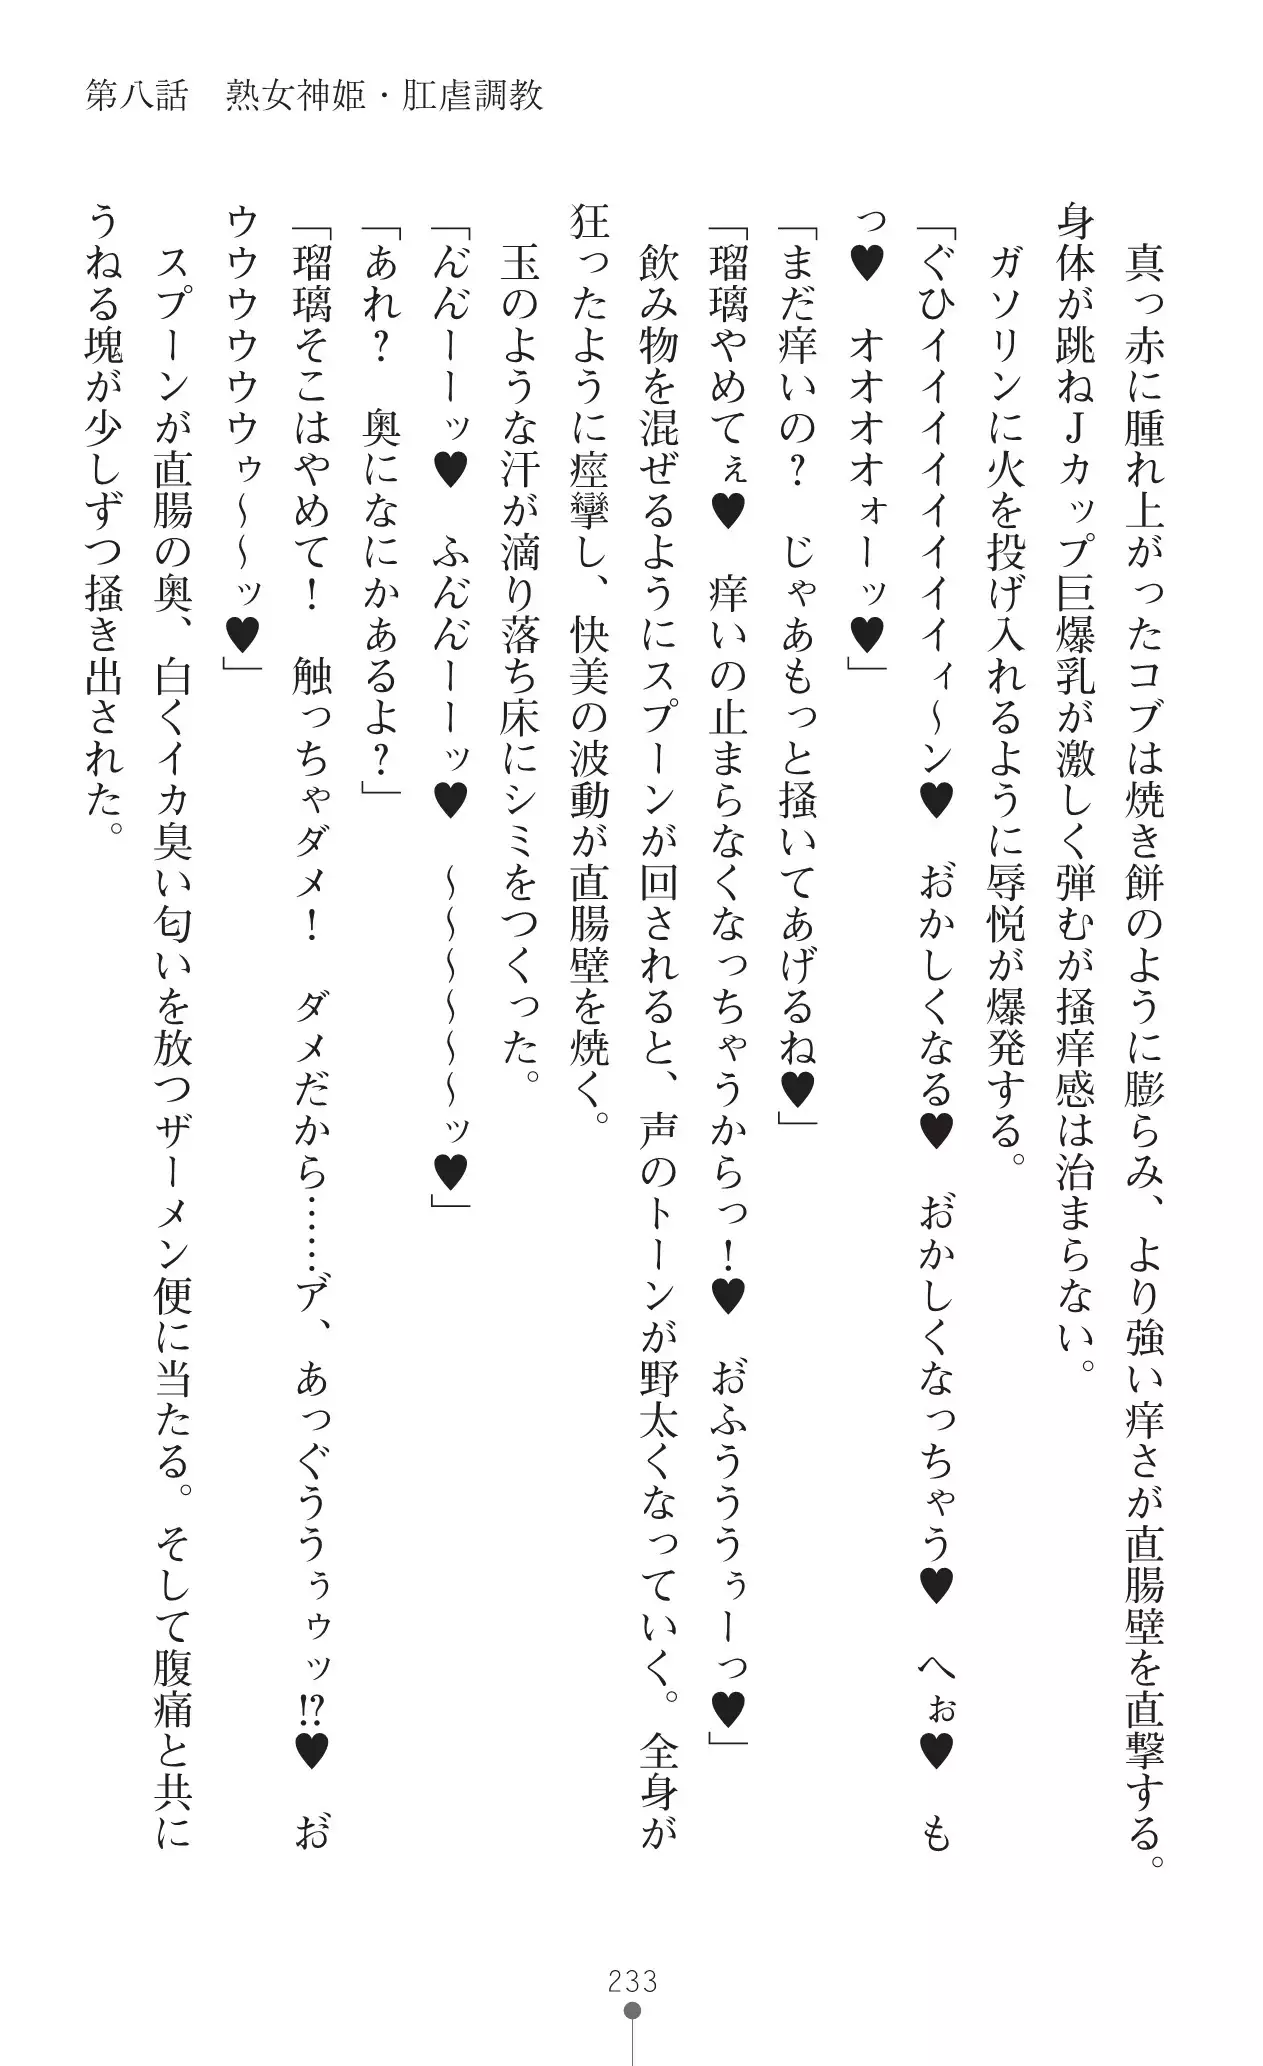 第八話　熟女神姫・肛虐調教
　真っ赤に腫れ上がったコブは焼き餅のように膨らみ、より強い痒さが直腸壁を直撃する。
身体が跳ねＪカップ巨爆乳が激しく弾むが掻痒感は治まらない。
　ガソリンに火を投げ入れるように辱悦が爆発する。
「ぐひイイイイイイイィ～ン♥　お゛かしくなる♥　お゛かしくなっちゃう♥　へぉ♥　も
っ♥　オオオオォーッ♥」
「まだ痒いの？　じゃあもっと掻いてあげるね♥」
「瑠璃やめてぇ♥　痒いの止まらなくなっちゃうからっ！♥　お゛ふうううぅーっ♥」
　飲み物を混ぜるようにスプーンが回されると、声のトーンが野太くなっていく。全身が
狂ったように痙攣し、快美の波動が直腸壁を焼く。
　玉のような汗が滴り落ち床にシミをつくった。
「ん゛ん゛ーーッ♥　ふん゛ん゛ーーッ♥　～～～～～～ッ♥」
「あれ？　奥になにかあるよ？」
「瑠璃そこはやめて！　触っちゃダメ！　ダメだから……ア゛、あっぐううぅゥッ⁉♥　お゛
ウウウウウウゥ～～ッ♥」
　スプーンが直腸の奥、白くイカ臭い匂いを放つザーメン便に当たる。そして腹痛と共に
うねる塊が少しずつ掻き出された。
233